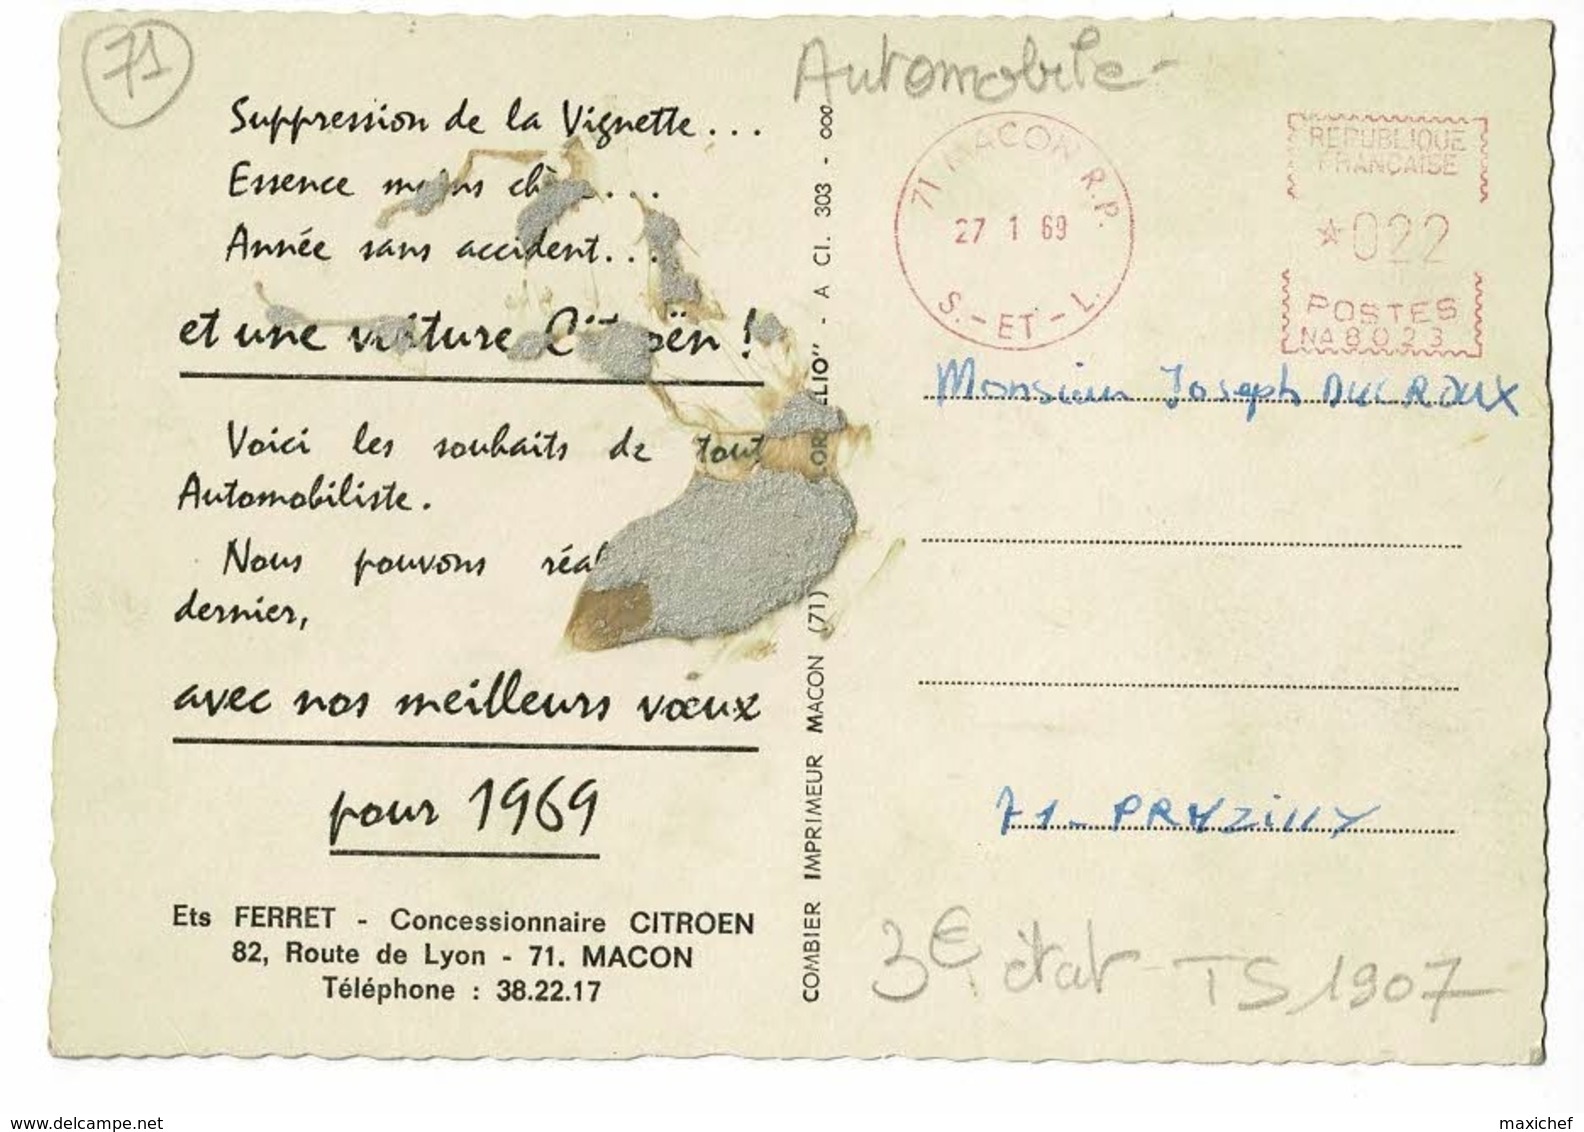 71
Automobile -
Suppression de la Vignette...
Essence moins chère...
Année sans accident...
et une voiture Citroën !
Voici les souhaits de tout
Automobiliste.
Nous pouvons
dernier,
avec nos meilleurs vœux
pour 1969
Ets FERRET - Concessionnaire CITROEN
82, Route de Lyon - 71. MACON
Téléphone : 38.22.17
COMBIER IMPRIMEUR MACON (71) - A CI. 303 - 000
71 MACON R.P.
27 1 69
S.-ET-L.
REPUBLIQUE
FRANÇAISE
*022
POSTES
NA 8023
Monsieur Joseph DUCROUX
71 - PRUZILLY
3€ état - TS 1907
www.delcampe.net
maxichef